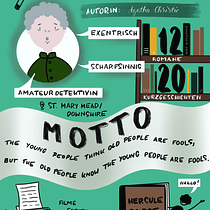 AUTORIN: Agatha Christie
EXENTRISCH
SCHARFSINNIG
12
ROMANE
20
KURZGESCHICHTEN
AMATEURDETEKTIVIN
ST. MARY MEAD/
DOWNSHIRE
MOTTO
THE YOUNG PEOPLE THINK OLD PEOPLE ARE FOOLS,
BUT THE OLD PEOPLE KNOW THE YOUNG PEOPLE ARE FOOLS.
HALLO!
FILME
HERCULE